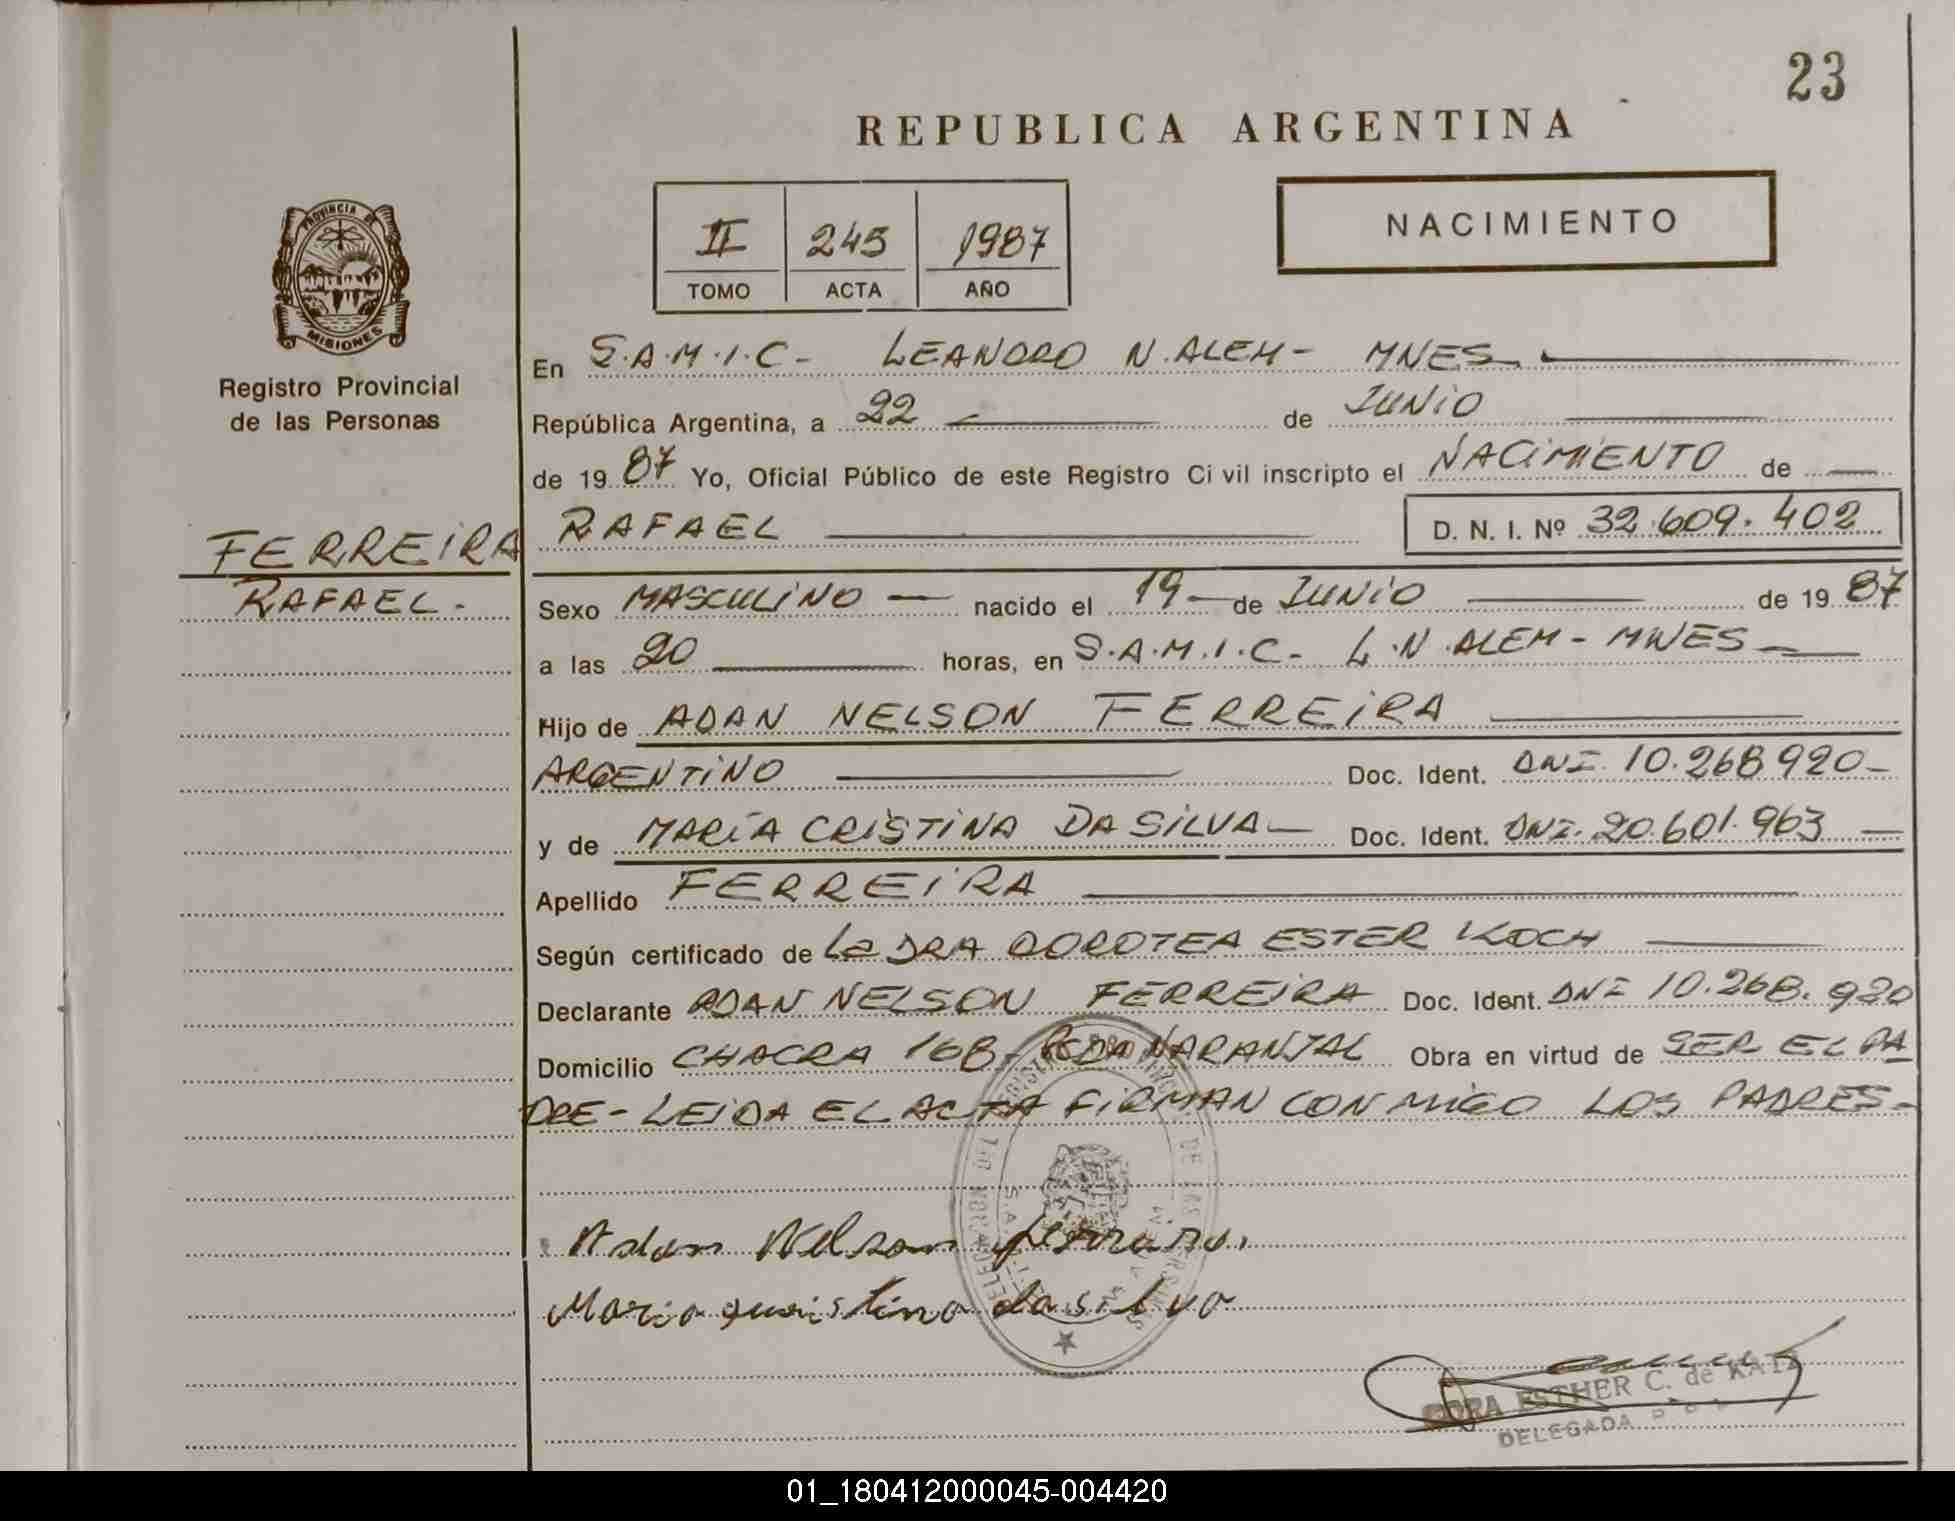 23
REPUBLICA ARGENTINA
II 245 1987
TOMO ACTA AÑO
NACIMIENTO
PROVINCIA DE
MISIONES
Registro Provincial
de las Personas
FERREIRA
RAFAEL.-
En S.A.M.I.C- LEANDRO N.ALEM- MNES.
República Argentina, a 22 de JUNIO
de 19 87 Yo, Oficial Público de este Registro Ci vil inscripto el NACIMIENTO de
RAFAEL D. N. I. Nº 32.609.402
Sexo MASCULINO nacido el 19 de JUNIO de 19 87
a las 20 horas, en S.A.M.I.C- L.N.ALEM- MNES
Hijo de ADAN NELSON FERREIRA
ARGENTINO Doc. Ident. DNI 10.268920-
y de MARÍA CRISTINA DA SILVA- Doc. Ident. DNI.20.601.963
Apellido FERREIRA
Según certificado de La DRA DOROTEA ESTER KOCH
Declarante ADAN NELSON FERREIRA Doc. Ident. DNI 10.268.920
Domicilio CHACRA 168- PCDA NARANJAL Obra en virtud de SER EL PA
DRE- LEIDA EL ACTA FIRMAN CONMIGO LOS PADRES-
Adan Nelson ferrara.
Maria quristina da silva
ESTHER C. de KATZ
DELEGADA
01_180412000045-004420